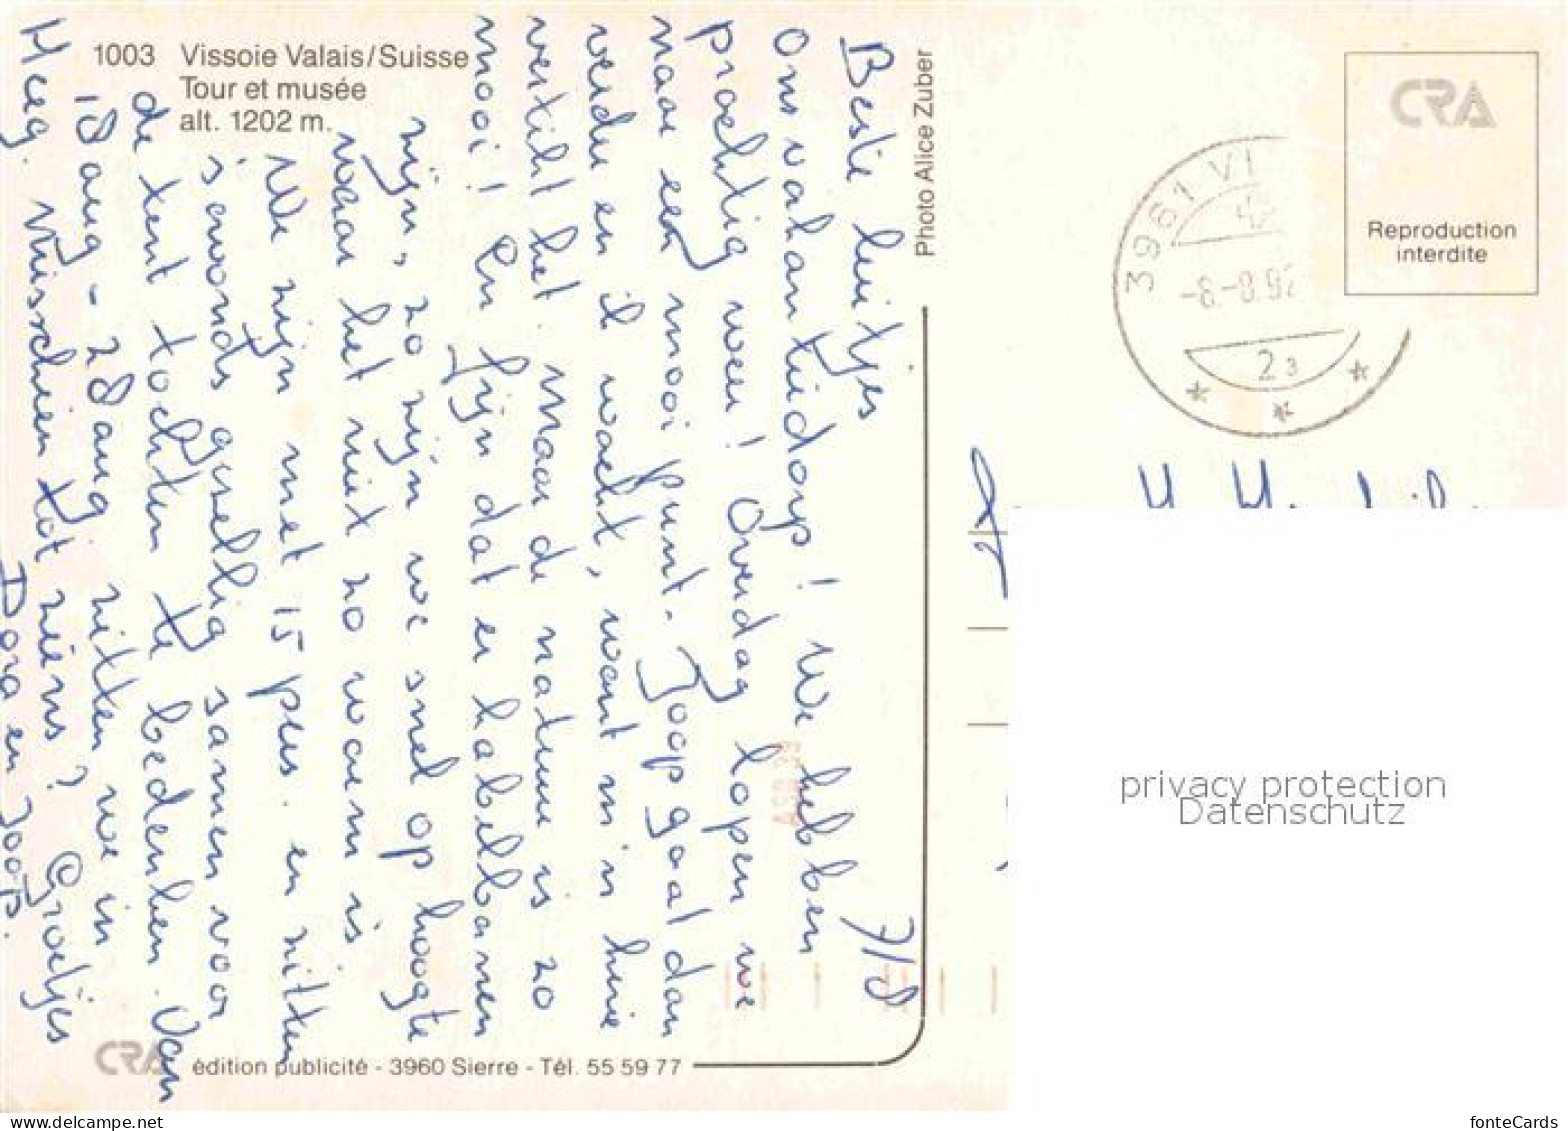 1003 Vissoie Valais/Suisse
Tour et musée
alt. 1202 m.
7/8
Beste luitjes
Ons vakantiedorp! We hebben
prachtig weer! Overdag lopen we
naar een mooi punt. Joop gaat dan
verder en ik wacht, want m'n knie
vertikt het. Maar de natuur is zo
mooi! En fijn dat er kabelbanen
zijn, zo zijn we snel op hoogte
waar het niet zo warm is
We zijn met 15 pers. en zitten
's avonds gezellig samen voor
de tent tochten te bedenken. Van
18 aug - 28 aug zitten we in
Heeg. Misschien tot ziens? Groetjes
Dora en Joop.
Photo Alice Zuber
CRA édition publicité - 3960 Sierre - Tél. 55 59 77
CRA
Reproduction
interdite
3961 VI
-8.-8.92
23
privacy protection
Datenschutz
fonteCards